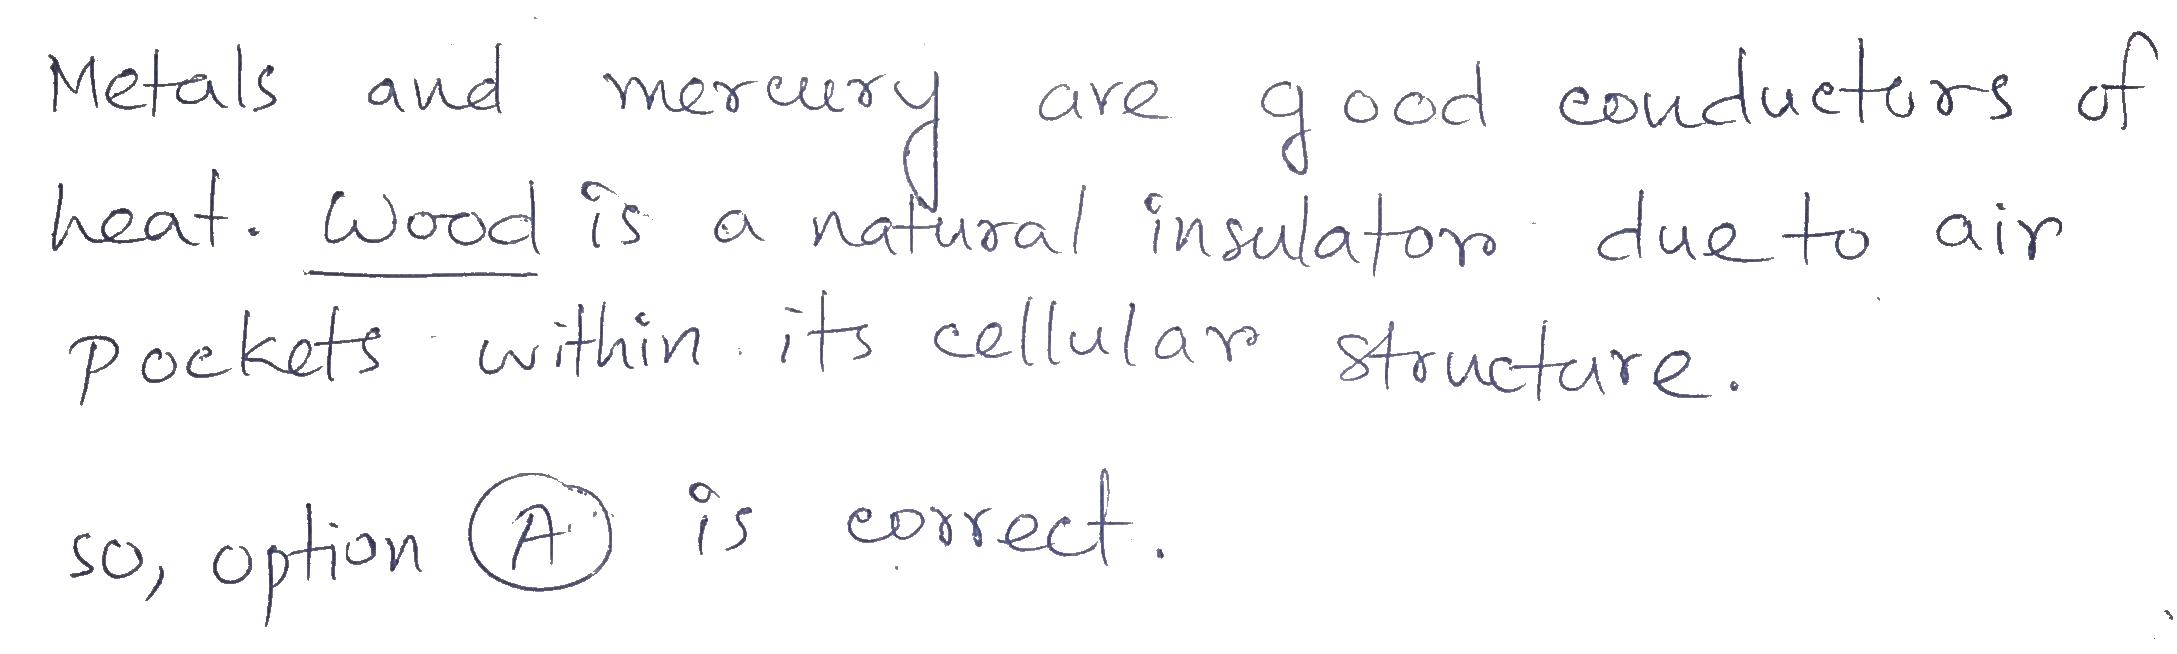 Metals and mercury are good conductors of
heat. Wood is a natural insulator due to air
Pockets within its cellular structure.
so, option A is correct.